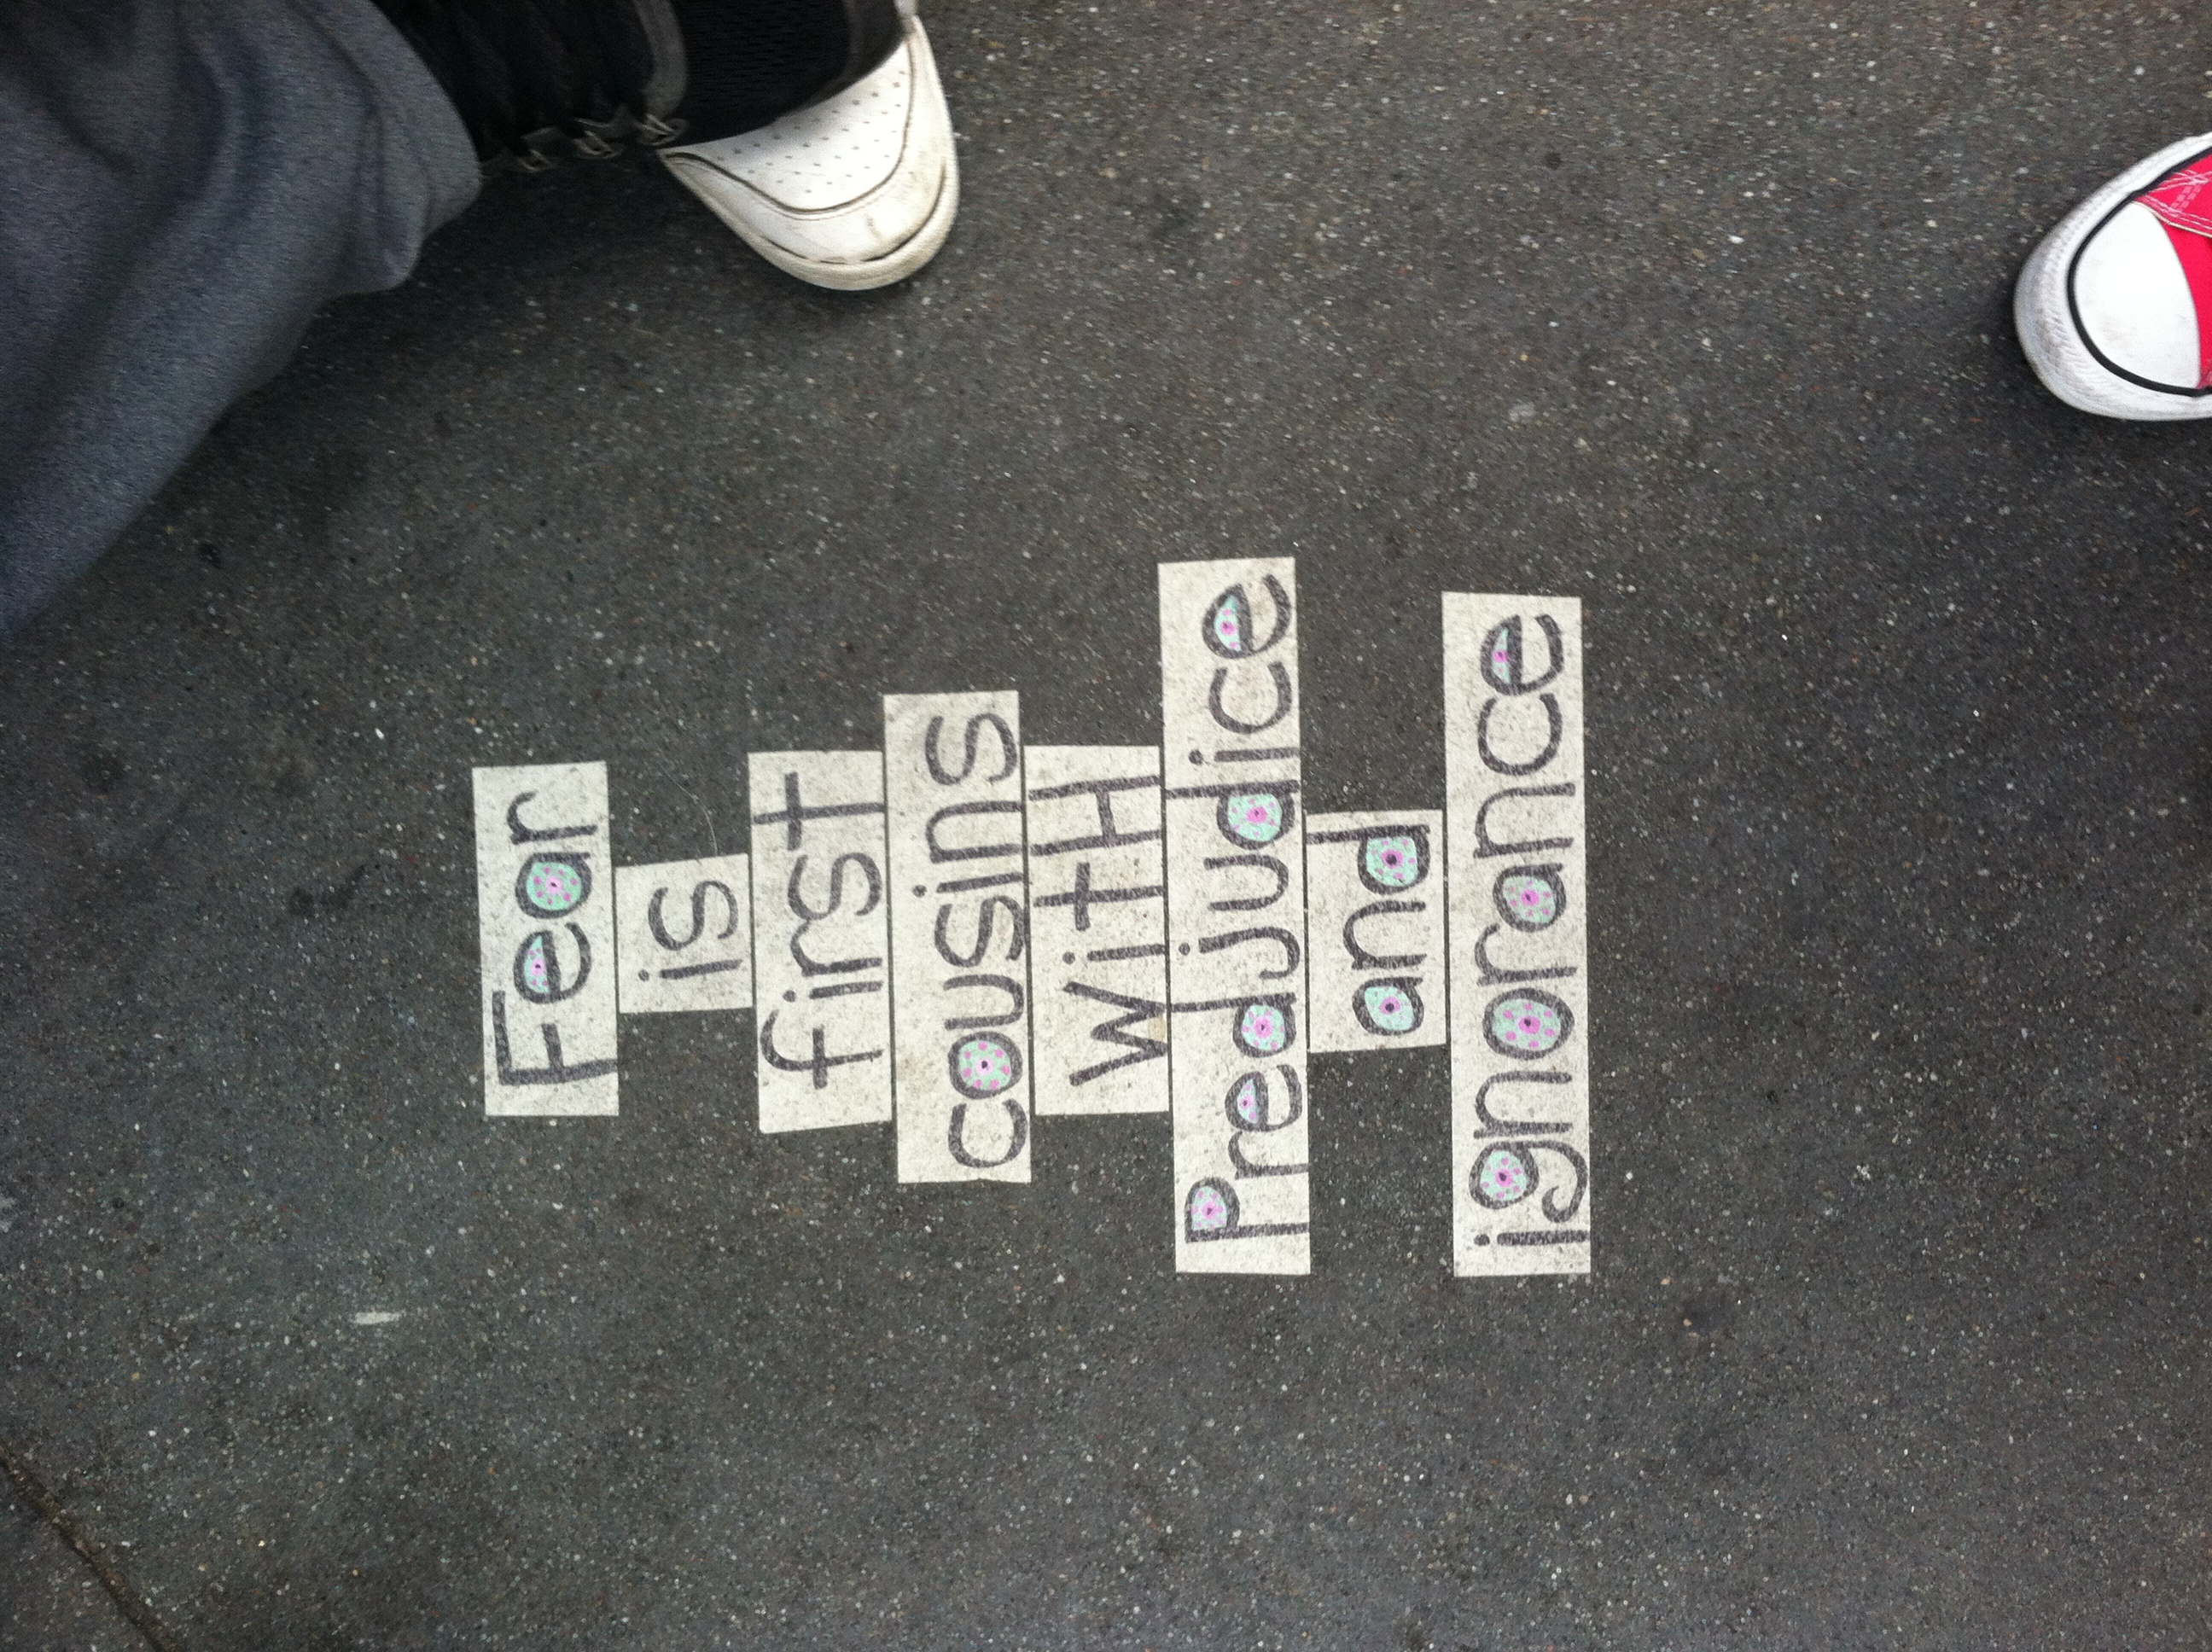 Fear
is
first
cousins
WitH
Predjudice
and
ignorance